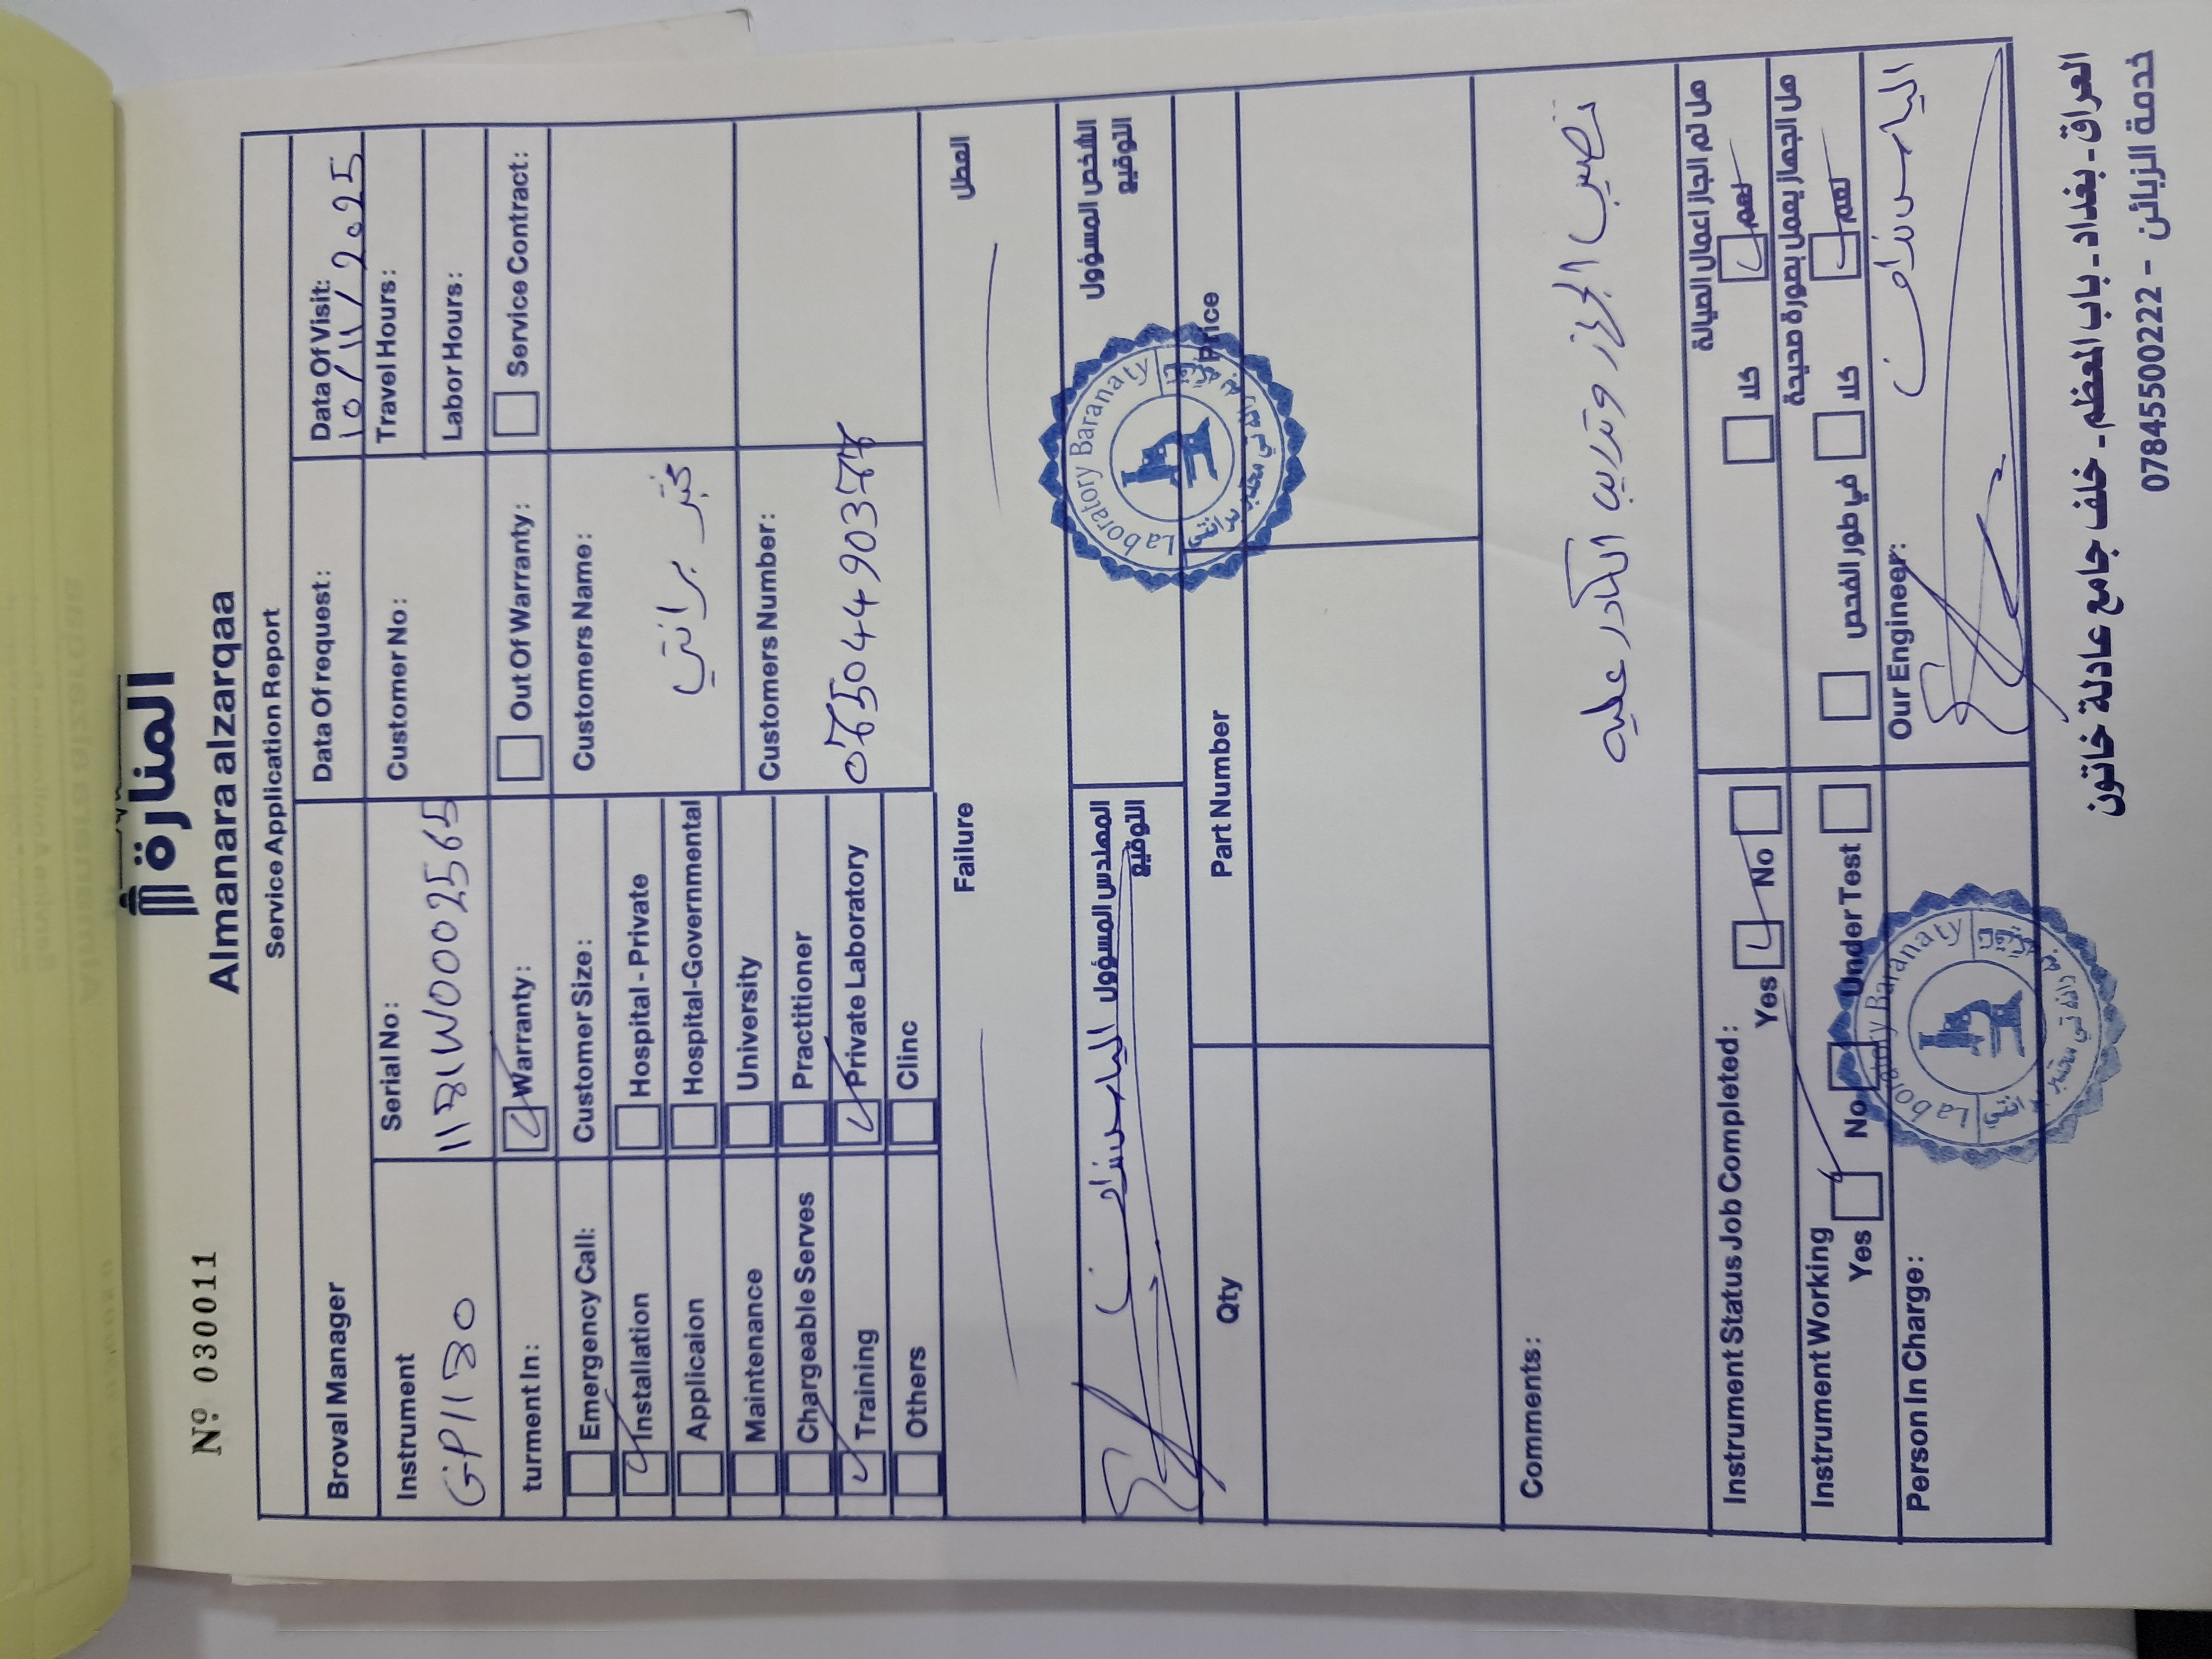 المنارة
Almanara alzarqaa
Nº 030011
Service Application Report
Broval Manager
Data Of request:
Data Of Visit:
10/11/2025
Instrument
GP1130
Serial No:
Customer No:
Travel Hours:
Labor Hours:
turment In:
Warranty:
Out Of Warranty:
Service Contract:
Emergency Call:
Installation
Applicaion
Maintenance
Chargeable Serves
Training
Others
Customer Size:
Hospital - Private
Hospital-Governmental
University
Practitioner
Private Laboratory
Clinc
Customers Name:
مختبر براثتي
Customers Number:
Failure
العطل
المهندس المسؤول
التوقيع
الشخص المسؤول
التوقيع
Laboratory Baranaty
Qty
Part Number
Price
Comments:
تنصيب الجهاز وتدريب الكادر عليه
Instrument Status Job Completed:
Yes
No
هل تم انجاز اعمال الصيانة
كلا
نعم
Instrument Working
Yes
No
Under Test
هل الجهاز يعمل بصورة صحيحة
في طور الفحص
كلا
نعم
Person In Charge:
Laboratory Baranaty
Our Engineer:
العراق - بغداد - باب المعظم - خلف جامع عادلة خاتون
خدمة الزبائن - 07845500222